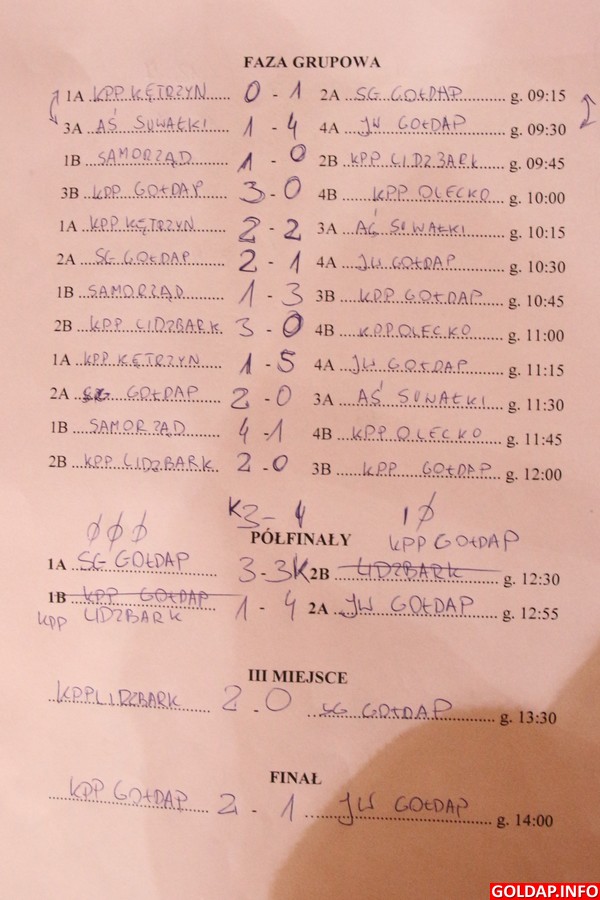 FAZA GRUPOWA
1A KPP KĘTRZYN 0 - 1 2A SG GOŁDAP g. 09:15
3A AŚ SUWAŁKI 1 - 4 4A JW GOŁDAP g. 09:30
1B SAMORZĄD 1 - 0 2B KPP LIDZBARK g. 09:45
3B KPP GOŁDAP 3 - 0 4B KPP OLECKO g. 10:00
1A KPP KĘTRZYN 2 - 2 3A AŚ SUWAŁKI g. 10:15
2A SG GOŁDAP 2 - 1 4A JW GOŁDAP g. 10:30
1B SAMORZĄD 1 - 3 3B KPP GOŁDAP g. 10:45
2B KPP LIDZBARK 3 - 0 4B KPP OLECKO g. 11:00
1A KPP KĘTRZYN 1 - 5 4A JW GOŁDAP g. 11:15
2A SG GOŁDAP 2 - 0 3A AŚ SUWAŁKI g. 11:30
1B SAMORZĄD 4 - 1 4B KPP OLECKO g. 11:45
2B KPP LIDZBARK 2 - 0 3B KPP GOŁDAP g. 12:00
K3 - 4
PÓŁFINAŁY
KPP GOŁDAP
1A SG GOŁDAP 3 - 3K 2B LIDZBARK g. 12:30
1B KPP GOŁDAP 1 - 4 2A JW GOŁDAP g. 12:55
KPP LIDZBARK
III MIEJSCE
KPP LIDZBARK 2 - 0 SG GOŁDAP g. 13:30
FINAŁ
KPP GOŁDAP 2 - 1 JW GOŁDAP g. 14:00
GOLDAP.INFO